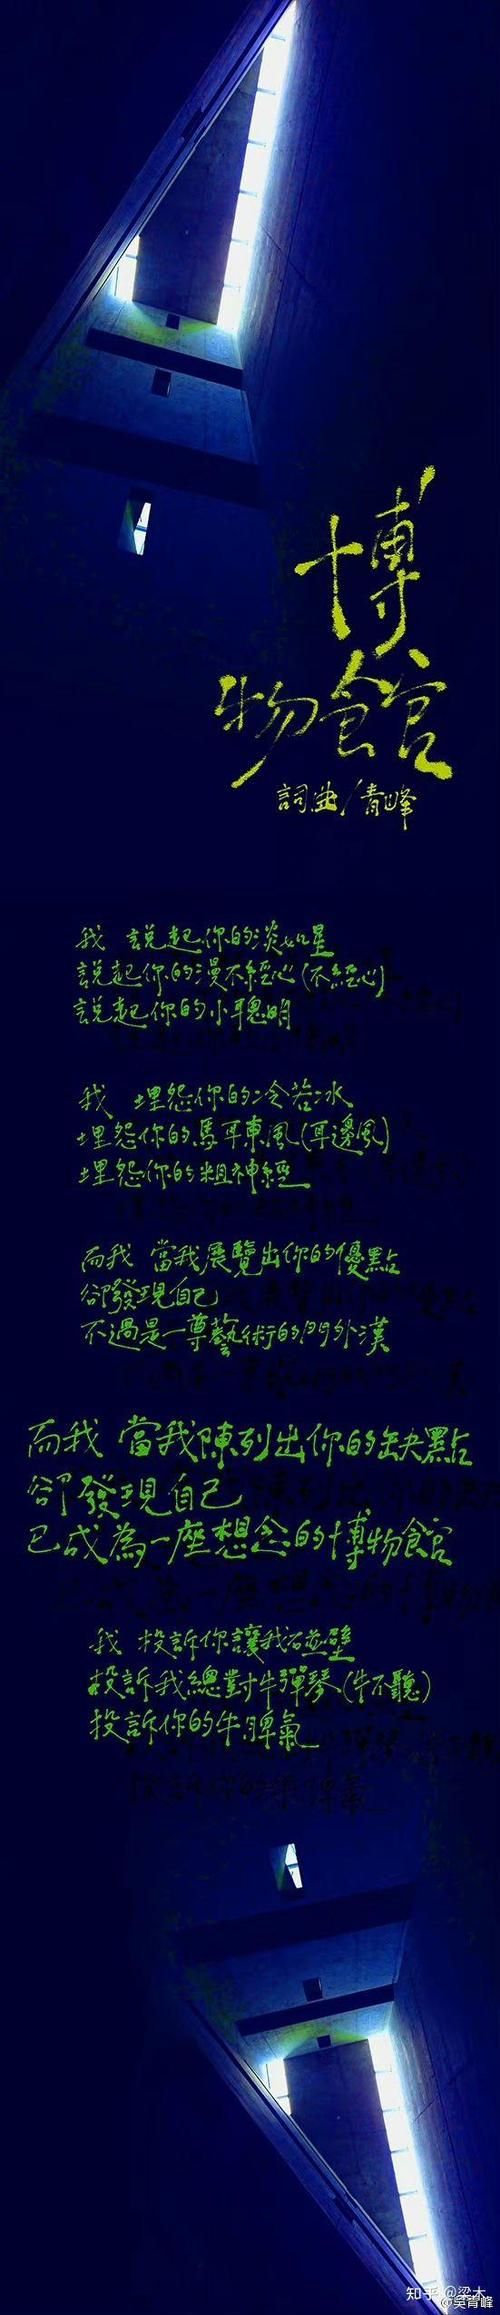 博
物館
詞曲/青峰
我 說起你的淡如星
說起你的漫不經心(不經心)
說起你的小聰明
我 埋怨你的冷若冰
埋怨你的馬耳東風(耳邊風)
埋怨你的粗神經
而我 當我展覽出你的優點
卻發現自己
不過是一尊藝術的門外漢
而我 當我陳列出你的缺點
卻發現自己
已成為一座想念的博物館
我 投訴你讓我碰壁
投訴我總對牛彈琴(牛不聽)
投訴你的牛脾氣
知乎 @梁木
@吳青峰